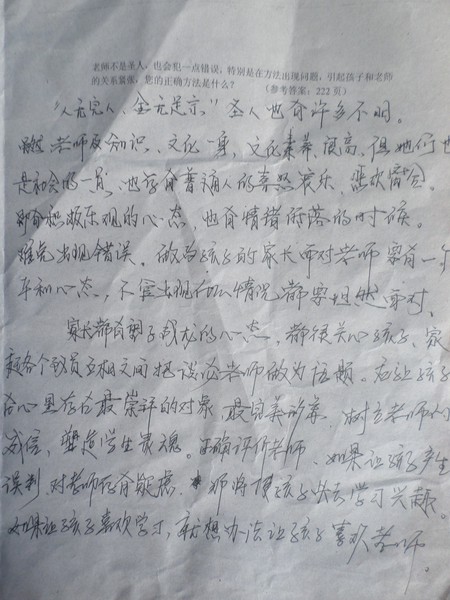 老师不是圣人，也会犯一点错误，特别是在方法出现问题，引起孩子和老师
的关系紧张，您的正确方法是什么？ （参考答案：222页）
“人无完人、金无足赤”圣人也有许多不明。
老师及知识、文化一身，文化素养很高，但他们也
是社会的一员，也存有普通人的喜怒哀乐，悲欢
即有积极乐观的心态，也有情绪低落的时候。
难免出现错误。做为孩子的家长面对老师要有一个
平和心态，不管出现什么情况都要坦然面对。
家长都有望子成龙的心态，都很关心孩子、家
庭各个成员互相之间把谈论老师做为话题。应让孩子
在心里存在最崇拜的对象，最完美形象 树立老师的
威信，塑造学生灵魂。正确评价老师、如果让孩子产生
误判，对老师存有疑虑、那将使孩子失去学习兴趣。
如果让孩子喜欢学习，就想办法让孩子喜欢老师